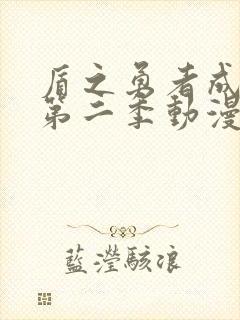 盾之勇者成
第二季動漫
藍瀅駭浪